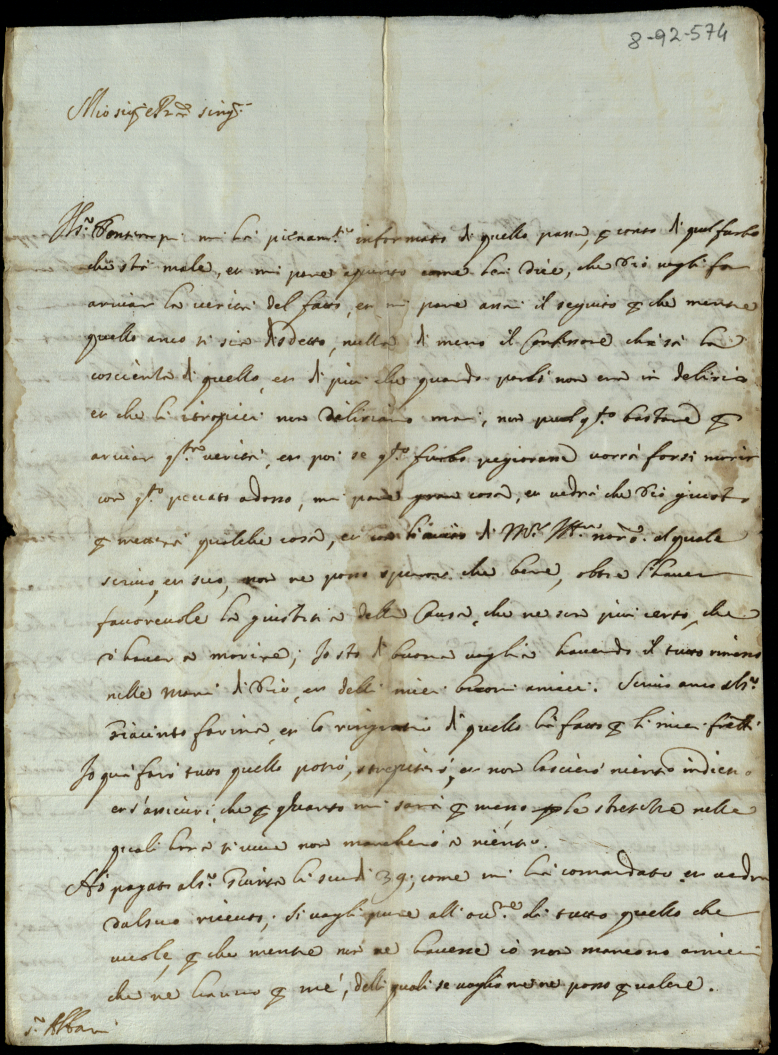 8-92-574
Mio sig.re e P.ron sing.r
Il s.r mi hà pienam.te informato di quello passa, p conto di quel furbo
che stà male, et mi pare apunto come lei dice, che Dio vogli far
arivar la verità del fatto, et mi pare assai il seguito p che mentre
quello anco si sia disdetto, nulla di meno il Confessore che sà la
coscienta di quello, et di più che quando parlò non era in delirio
et che li itropici non delirano mai, non può q.to bastare p
arivar q.ta verità, et poi se q.to furbo pegiorasse vorrà forsi morir
con q.to peccato adosso, mi pare gran cosa, et vedrà che Dio giusto
p metterà qualche cosa, et con di il quale
scrivo, et suo, non ne posso sperare che bene, oltre l'haver
favorevole la giustitia della Causa, che ne son più certo, che
d'haver a morire; Io stò di buona voglia havendo il tutto rimesso
nelle mani di Dio, et delli miei buoni amici. Scrivo anco al s.r
Giacinto farina, et lo ringratio di quello hà fatto p li miei fratelli
Io quà farò tutto quello potrò, strepitarò, et non lasciarò niente indietro
et s'assicuri, che p quanto mi sarà p meno le strette nelle
quali hora si vive non mancherò a niente.
Hò pagato al s.r li scudi 39; come mi hà comandato et vedrà
dal suo ricevuto; Si vagli pure all'oc.ne di tutto quello che
vuole, p che mentre non ne havesse io non mancano amici
che ne hanno p mè, delli quali se voglio me ne posso p valere.
s.r Albani